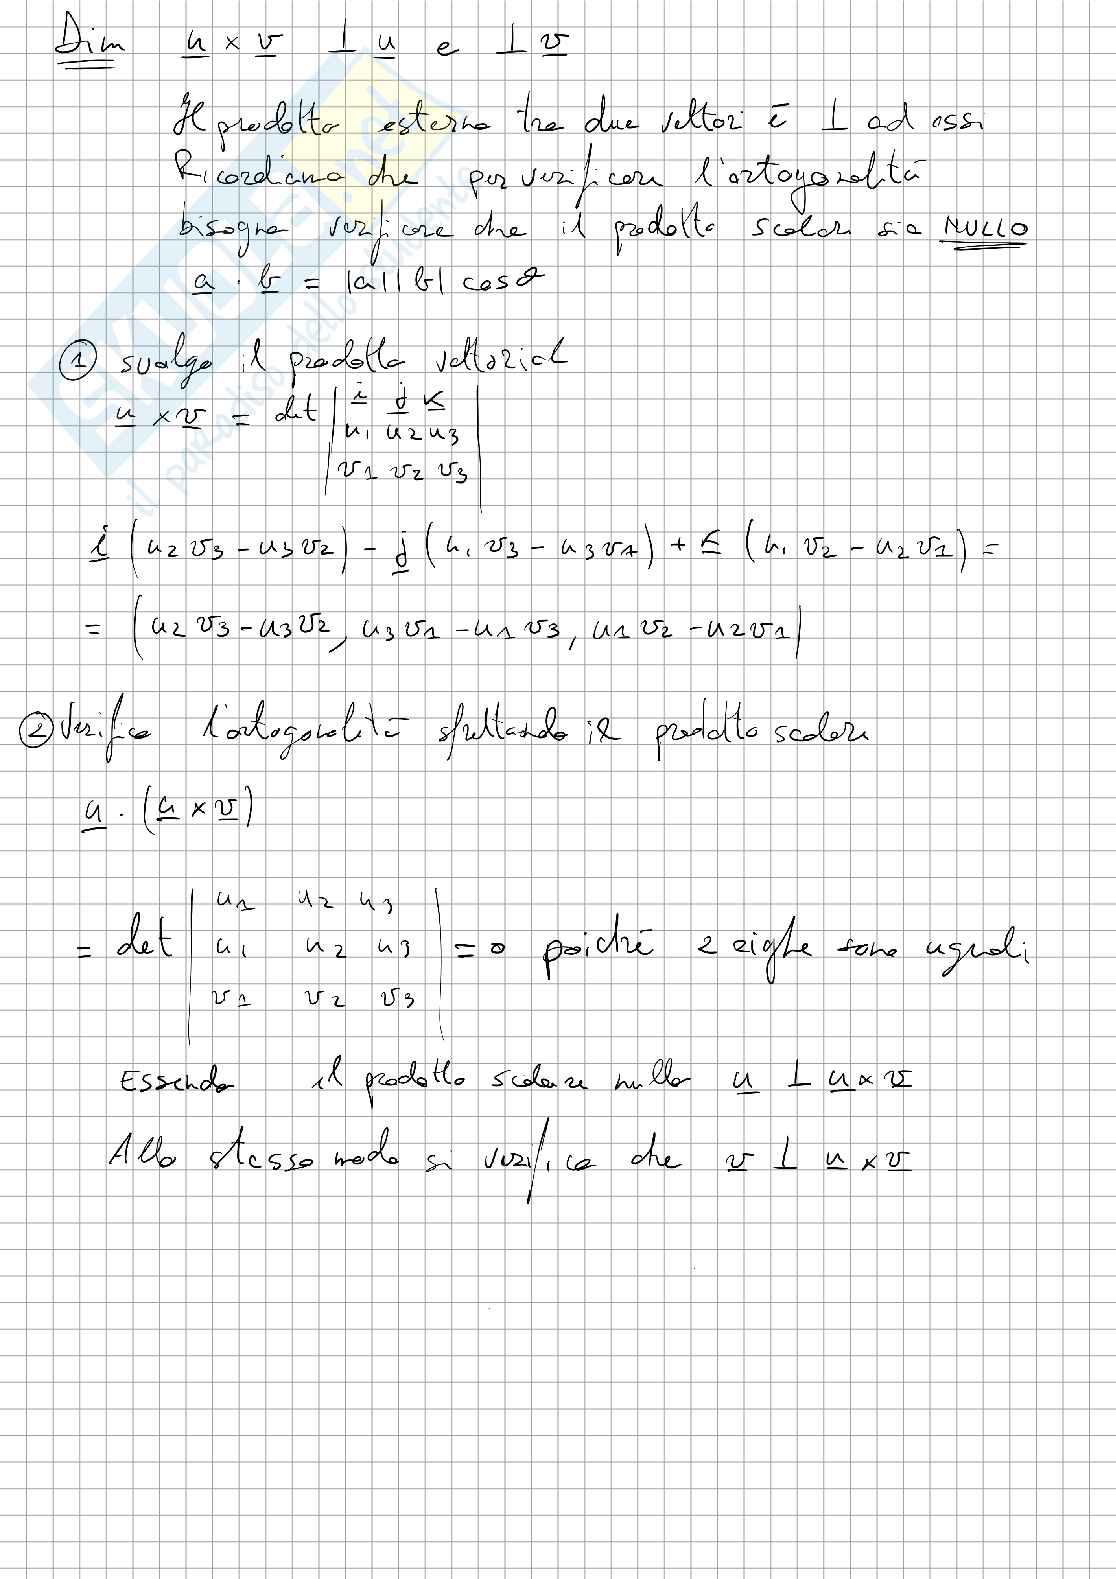 Dim u × v ⊥ u e ⊥ v
Il prodotto esterno tra due vettori è ⊥ ad essi
Ricordiamo che per verificare l'ortogonalità
bisogna verificare che il prodotto scalare sia NULLO
a · b = |a||b| cosθ
① svolgo il prodotto vettoriale
u × v = det | i j k
u1 u2 u3
v1 v2 v3 |
i (u2 v3 - u3 v2) - j (u1 v3 - u3 v1) + k (u1 v2 - u2 v1) =
= (u2 v3 - u3 v2, u3 v1 - u1 v3, u1 v2 - u2 v1)
② Verifico l'ortogonalità sfruttando il prodotto scalare
u · (u × v)
u1 u2 u3
= det | u1 u2 u3 | = 0 poiché 2 righe sono uguali
v1 v2 v3
Essendo il prodotto scalare nullo u ⊥ u × v
Allo stesso modo si verifica che v ⊥ u × v
SKUOLA.net
il paradiso dello studente